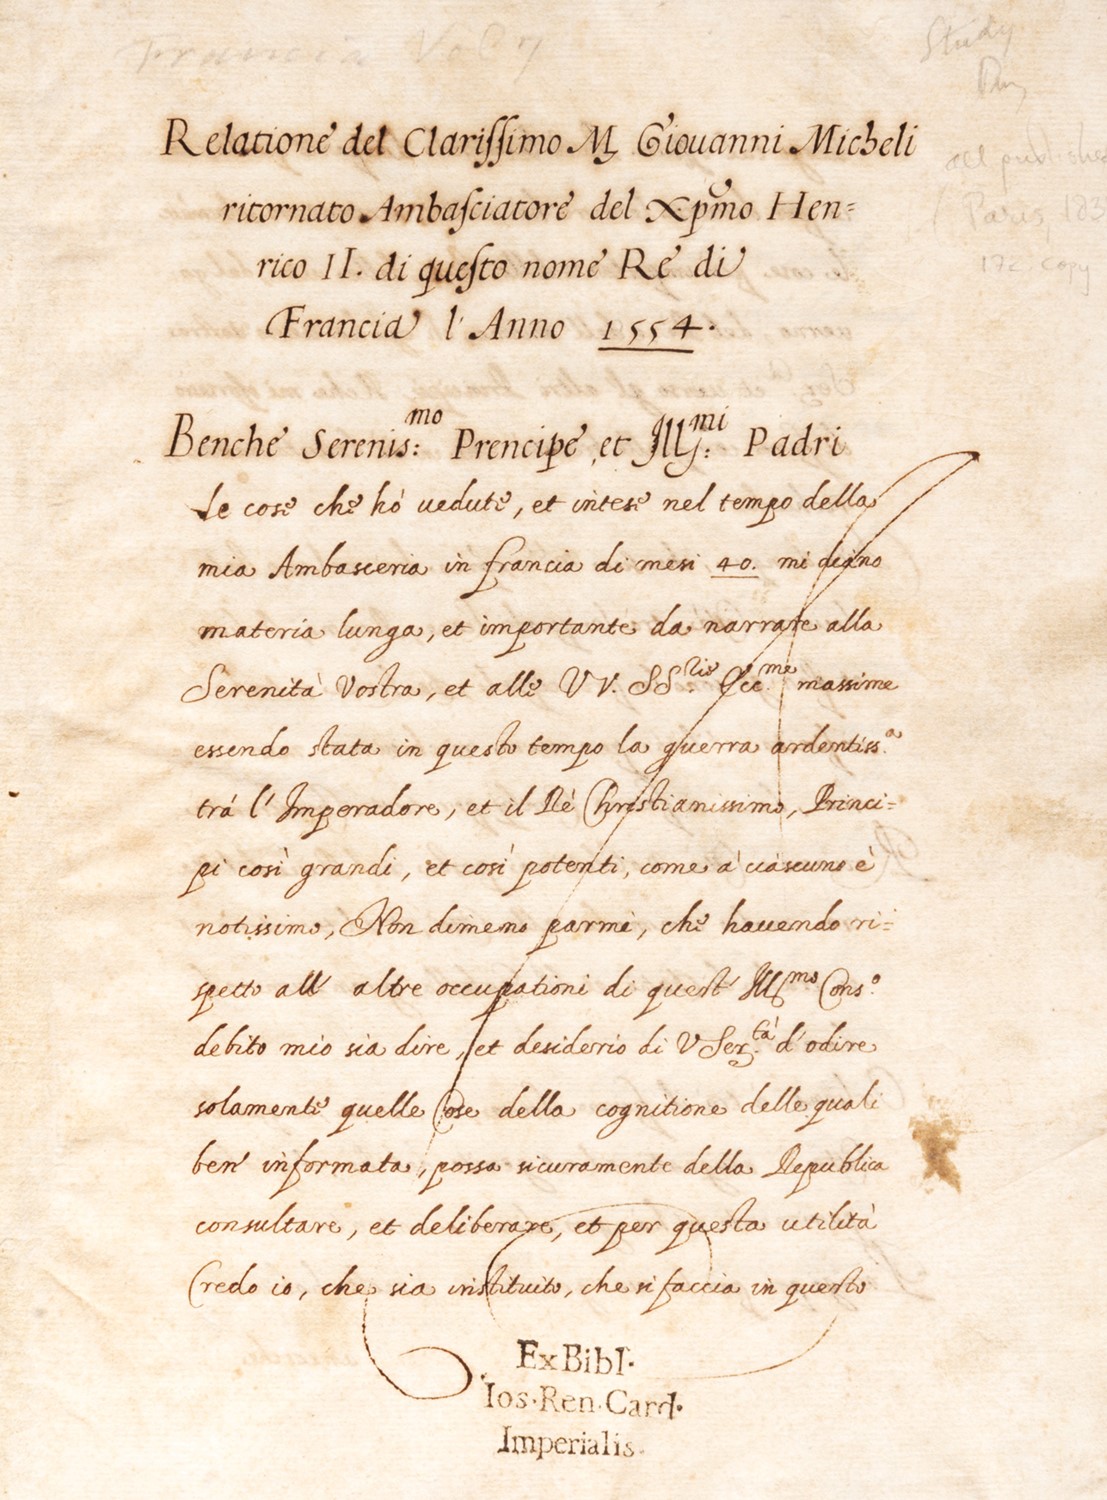 Francia Vol 7
Study
all published
Paris, 183
17c copy
Relatione del Clarissimo M. Giouanni Micheli
ritornato Ambasciatore del Xpmo Hen=
rico II. di questo nome Re di
Francia l'Anno 1554.
Benche Serenis:mo Prencipe, et Ill:mi Padri
le cose che hò uedute, et intese nel tempo della
mia Ambasceria in francia di mesi 40. mi diano
materia lunga, et importante da narrare alla
Serenità Vostra, et alle VV. SS.rie Ecc.me massime
essendo stata in questo tempo la guerra ardentiss.a
trà l'Imperadore, et il Rè Christianissimo, Princi=
pi così grandi, et così potenti, come à ciascuno è
notissimo, Non dimeno parmi, che hauendo ri=
spetto all' altre occupationi di quest' Ill.mo Cons.o
debito mio sia dire, et desiderio di V Ser.tà d'odire
solamente quelle Cose della cognitione delle quali
ben' informata, possa sicuramente della Republica
consultare, et deliberare, et per questa utilità
Credo io, che sia instituito, che si faccia in questo
Ex Bibl.
Ios. Ren. Card.
Imperialis.